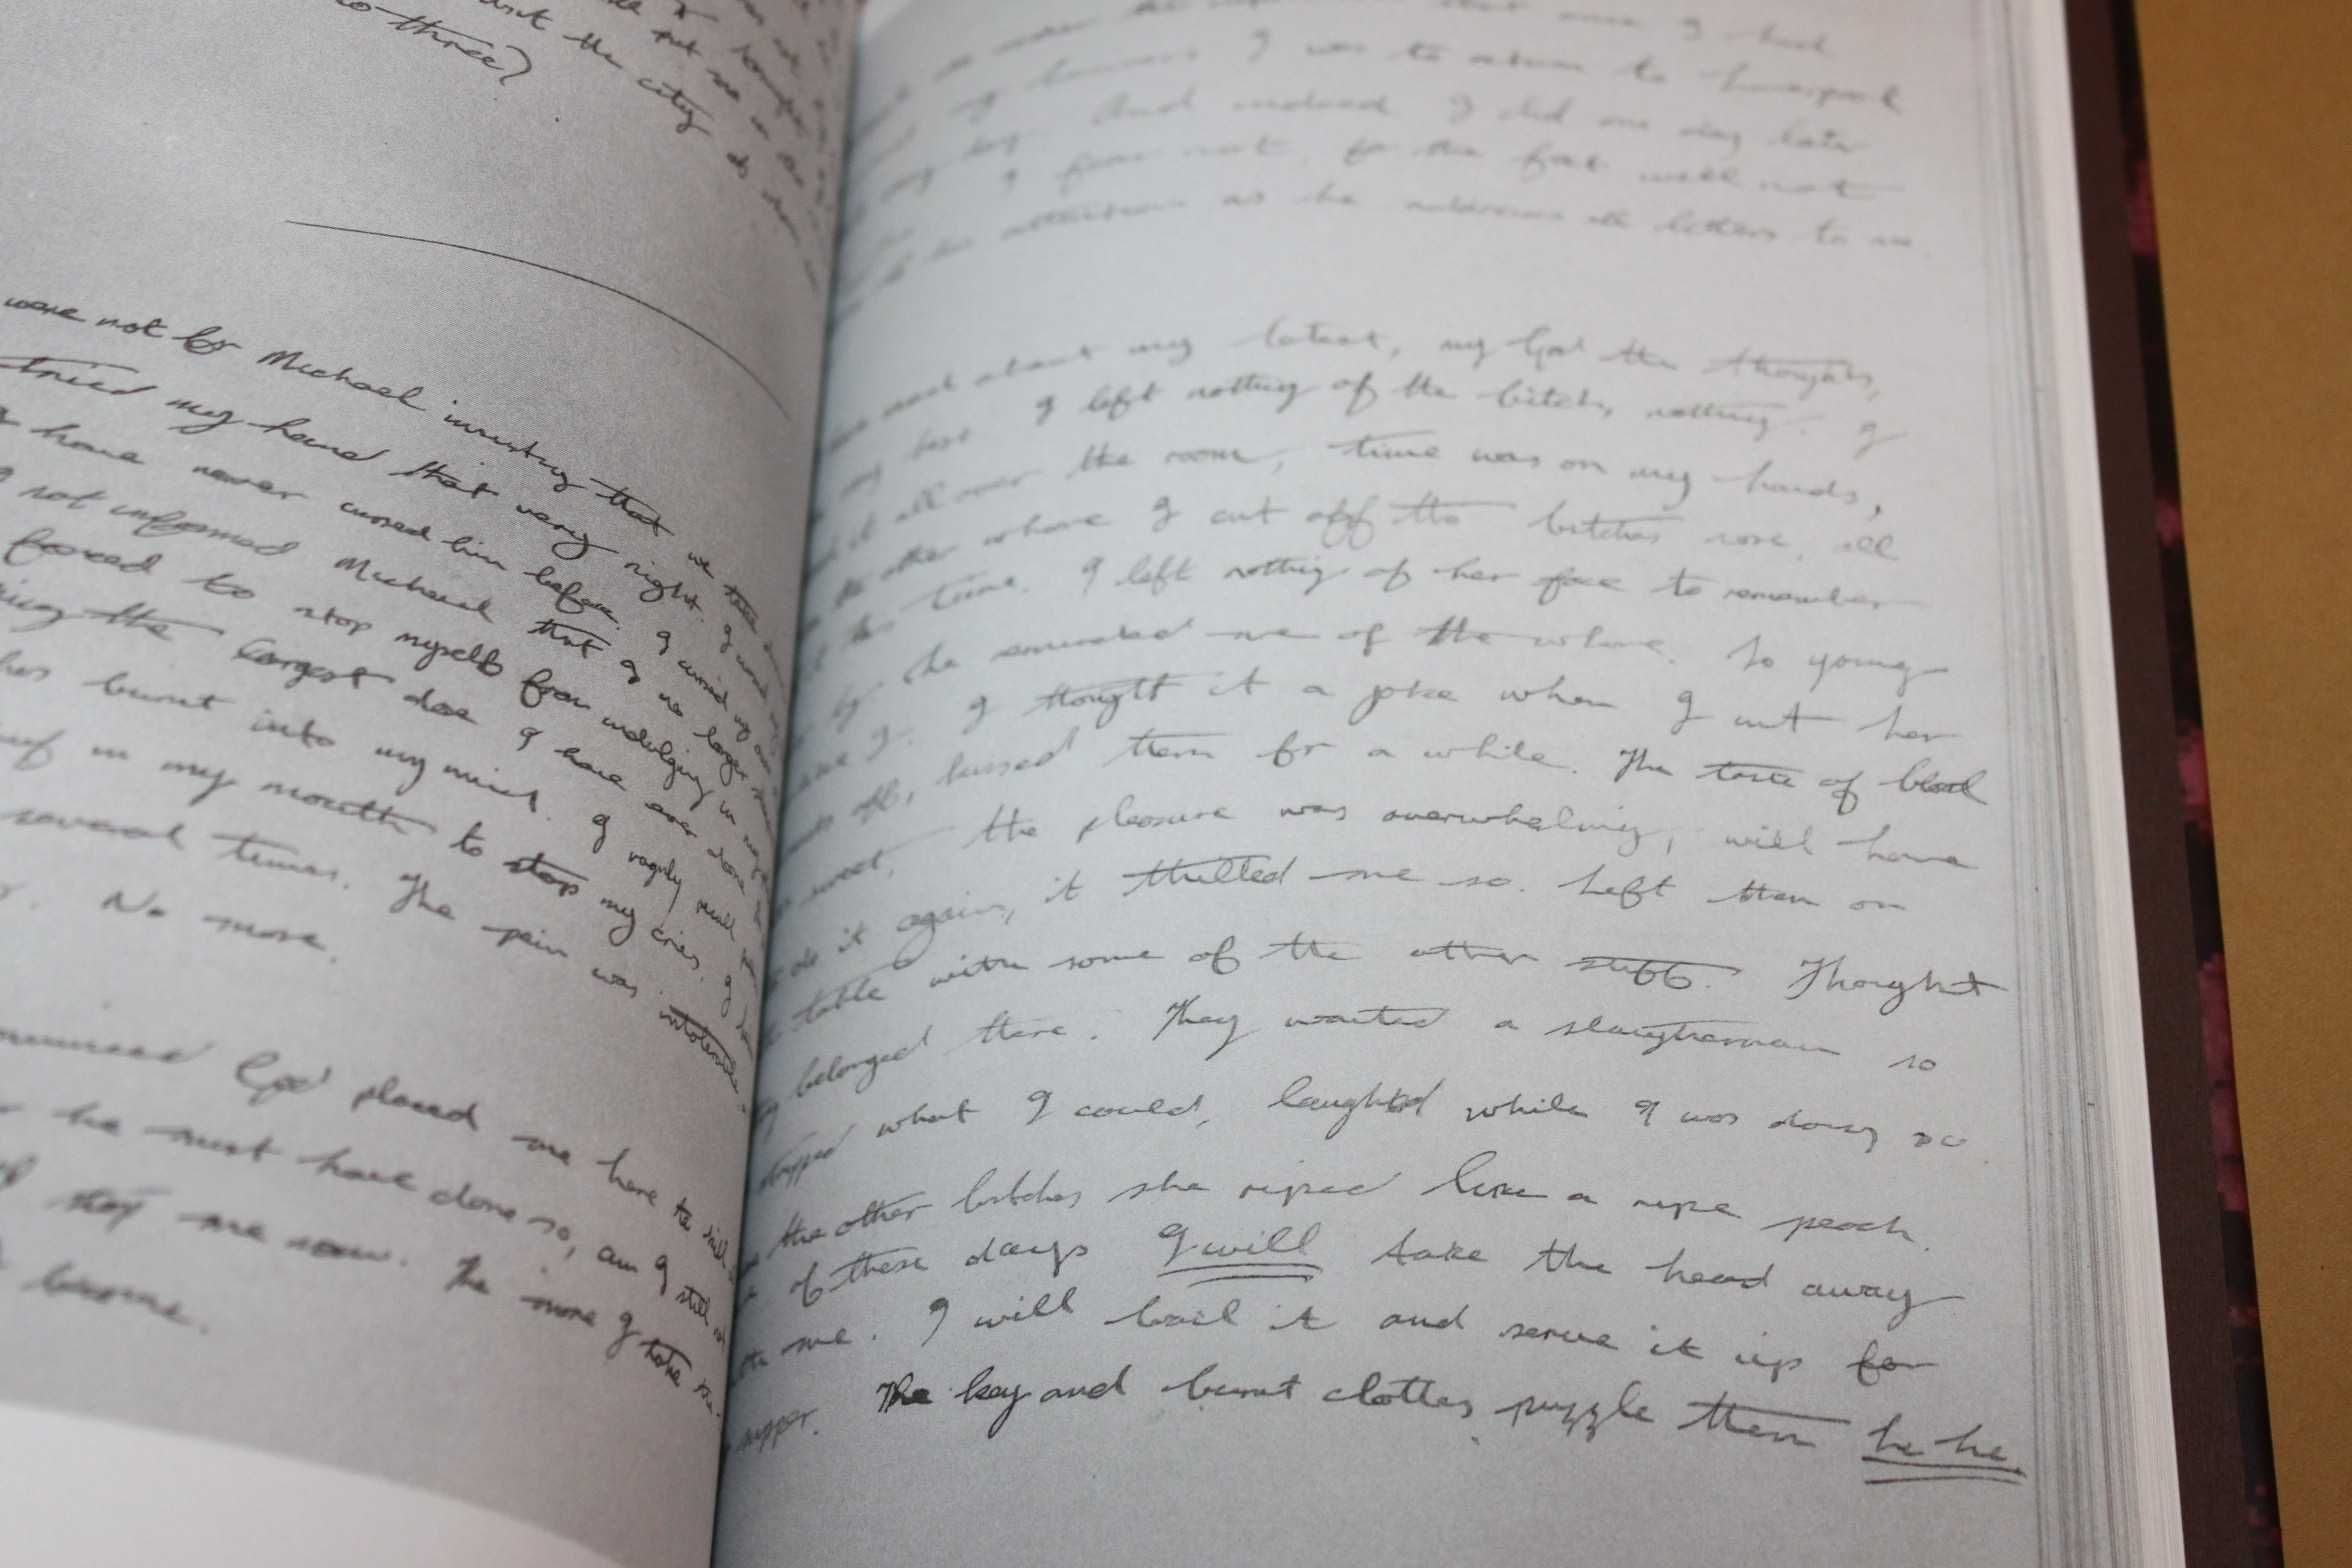 to three)
the city
were not for Michael insisting that we take
tried my hand that very night. I
have never cursed him before. I cursed my own
not informed Michael that I no longer
forced to stop myself from indulging in my
the largest dose I have ever done
has burnt into my mind. I vaguly recall
in my mouth to stop my cries. I
several times. The pain was intolerable
No more.
God placed me here to
he must have done so, am I still
stop me now. The more I take the
become.
that once I had
my business I was to return to Liverpool
day. And indeed I did one day later
I fear not, for the fact will not
attention as he addresses all letters to me
read about my latest, my God the thoughts,
best I left nothing of the bitch, nothing. I
it all over the room, time was on my hands,
the other whore I cut off the bitches nose, all
this time. I left nothing of her face to remember
by. She reminded me of the whore. So young
I. I thought it a joke when I cut her
off, kissed them for a while. The taste of blood
sweet, the pleasure was overwhelming, will have
do it again, it thrilled me so. Left them on
table with some of the other stuff. Thought
belonged there. They wanted a slaughterman so
stripped what I could, laughed while I was doing so
the other bitches she riped like a ripe peach.
of these days I will take the head away
me. I will boil it and serve it up for
supper. The key and burnt clothes puzzle them he he.